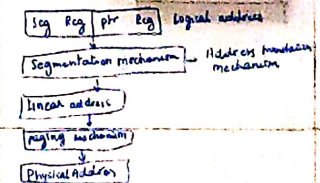 Seg Reg ptr Reg Logical address
Segmentation mechanism → Address translation
mechanism
Linear address
Paging mechanism
Physical Address